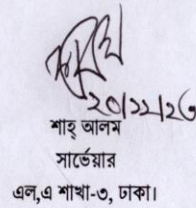 ২০/১১/২৩
শাহ্ আলম
সার্ভেয়ার
এল,এ শাখা-৩, ঢাকা।